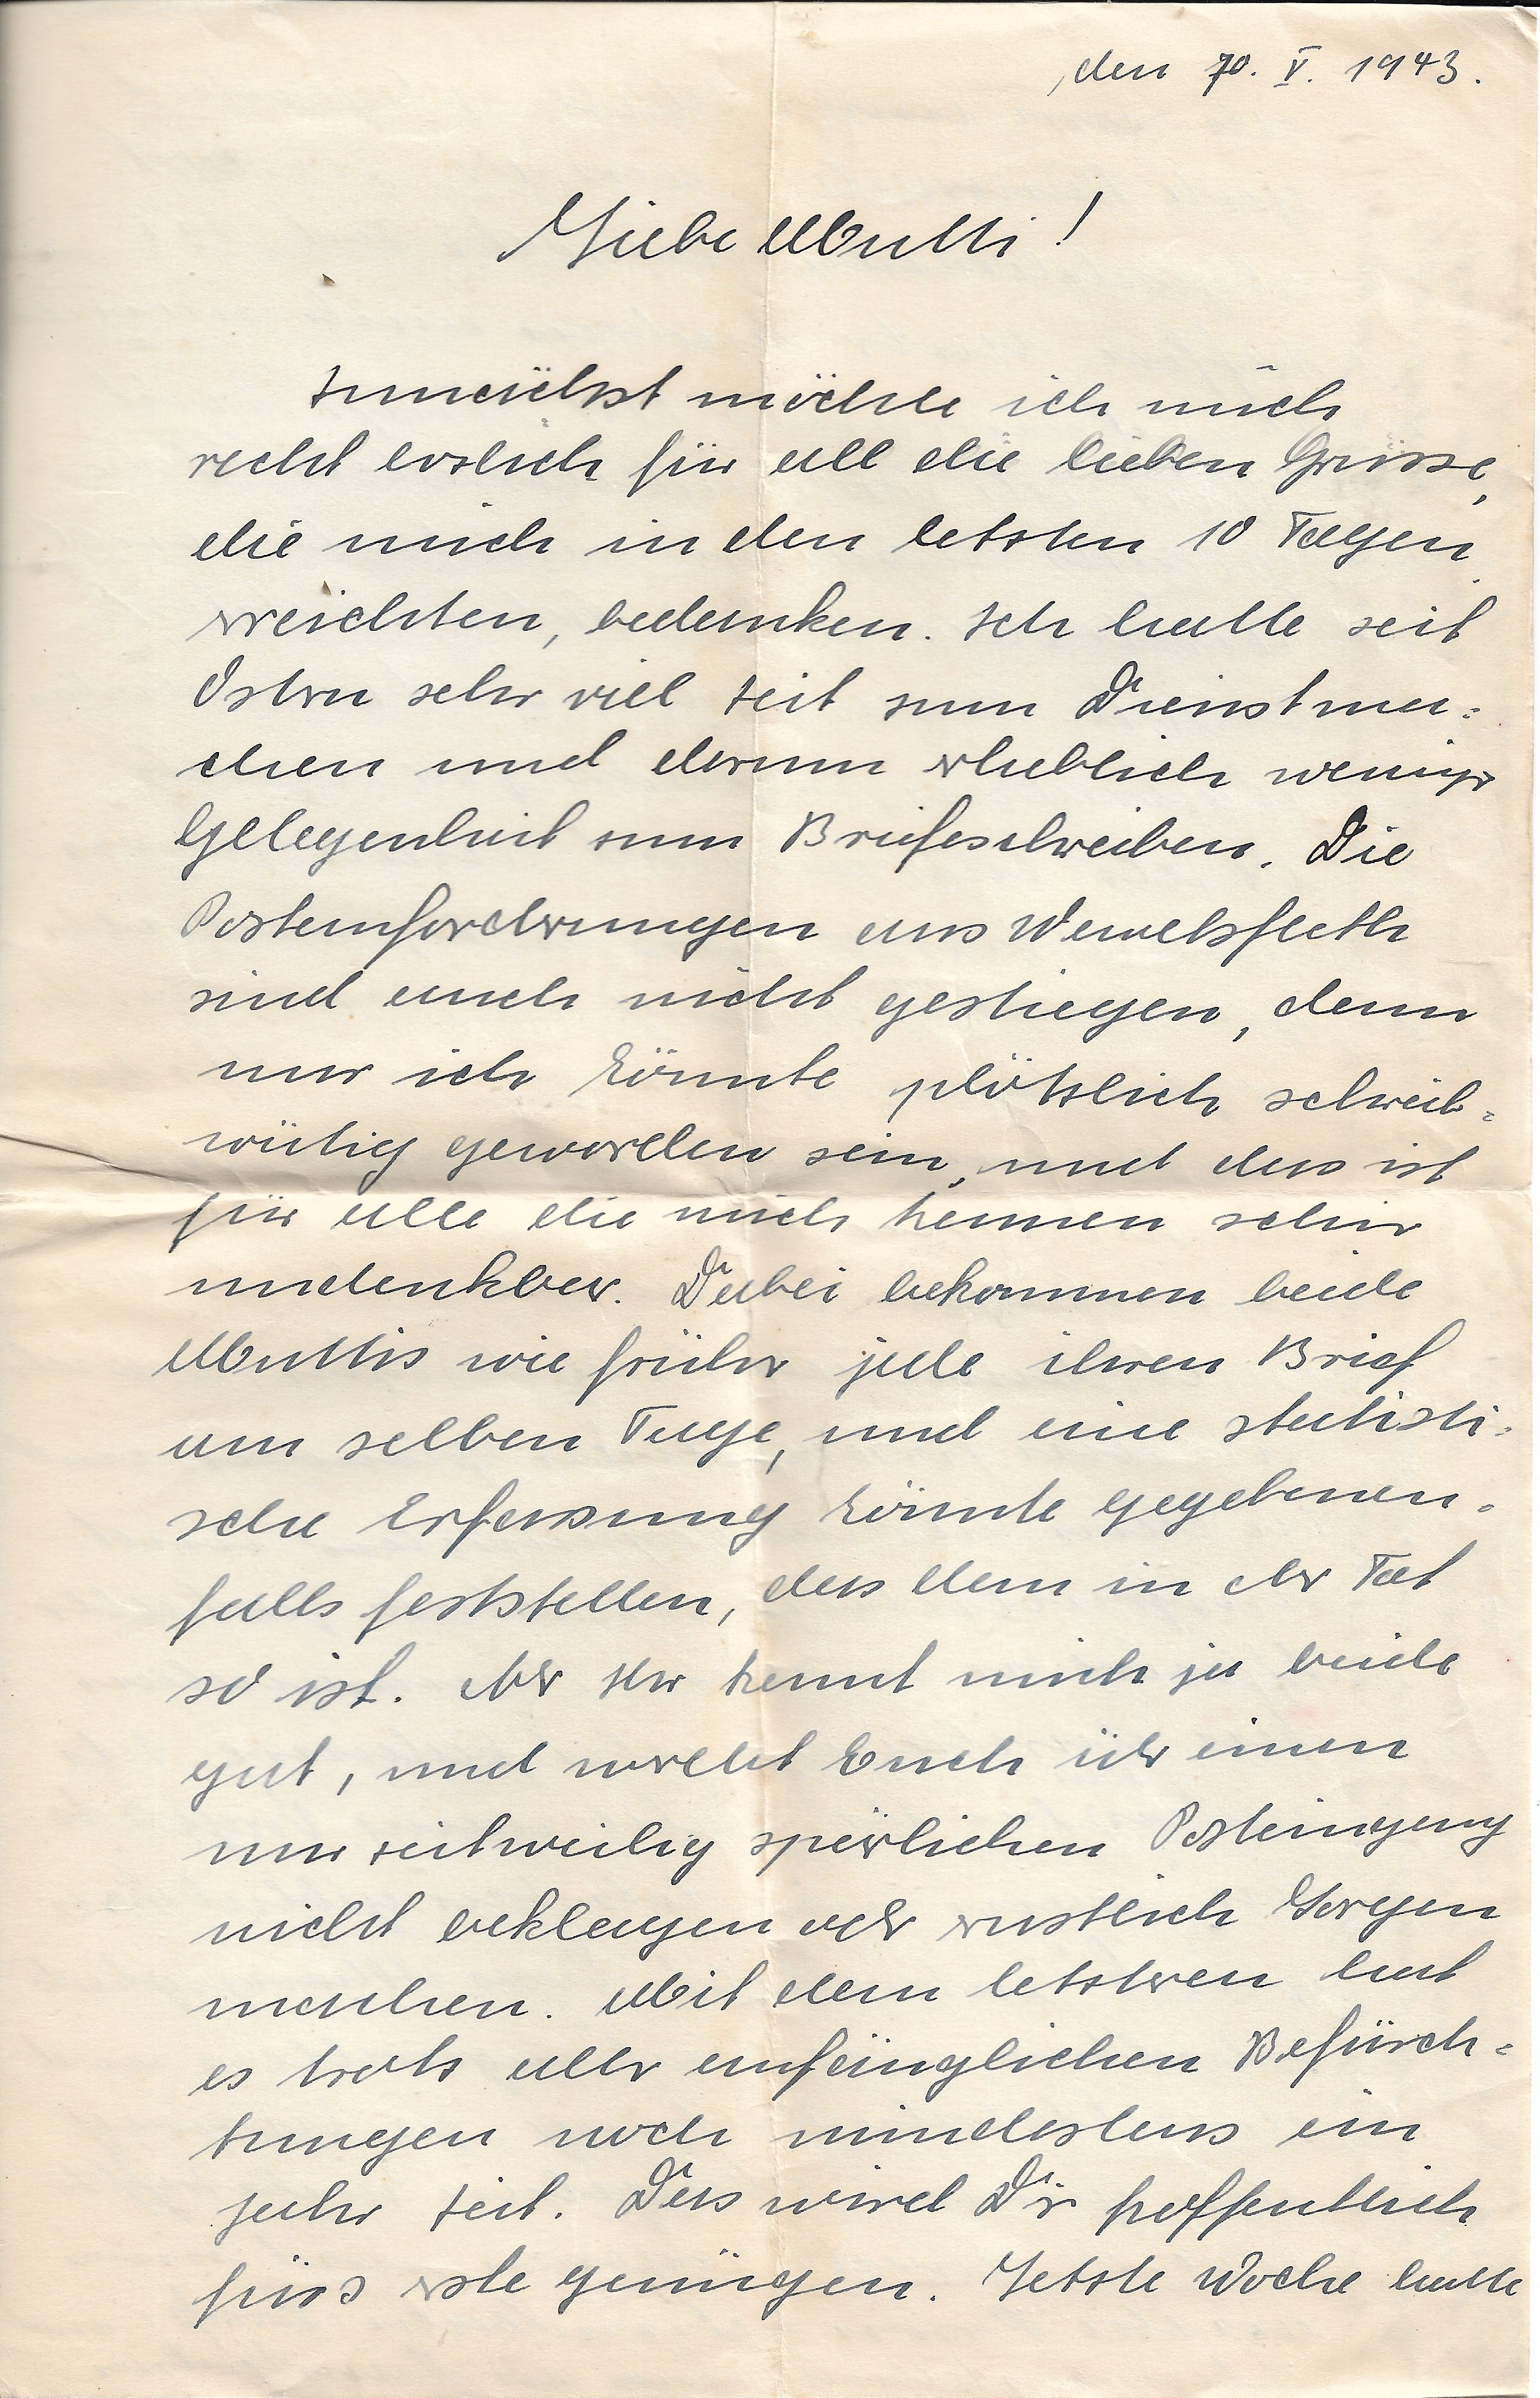 den 10. V. 1943.
Liebe Mutti!
Zunächst möchte ich mich
recht herzlich für all die lieben Grüsse,
die mich in den letzten 10 Tagen
erreichten, bedanken. Ich hatte seit
Ostern sehr viel Zeit zum Dienstma=
chen und darum erheblich weniger
Gelegenheit zum Briefeschreiben. Die
Postanforderungen aus Wewelsfleth
sind auch nicht gestiegen, denn
nur ich könnte plötzlich schreib=
wütig geworden sein, und das ist
für alle die mich kennen schier
undenkbar. Dabei bekommen beide
Muttis wie früher jede ihren Brief
am selben Tage, und eine statisti=
sche Erfassung könnte gegebenen=
falls feststellen, dass dem in der Tat
so ist. Aber Ihr kennt mich ja beide
gut, und werdet Euch über einen
nur zeitweilig spärlichen Posteingang
nicht beklagen oder ernstlich Sorgen
machen. Mit dem letzteren hat
es trotz aller anfänglichen Befürch=
tungen noch mindestens ein
Jahr Zeit. Das wird Dir hoffentlich
fürs erste genügen. Letzte Woche hatte